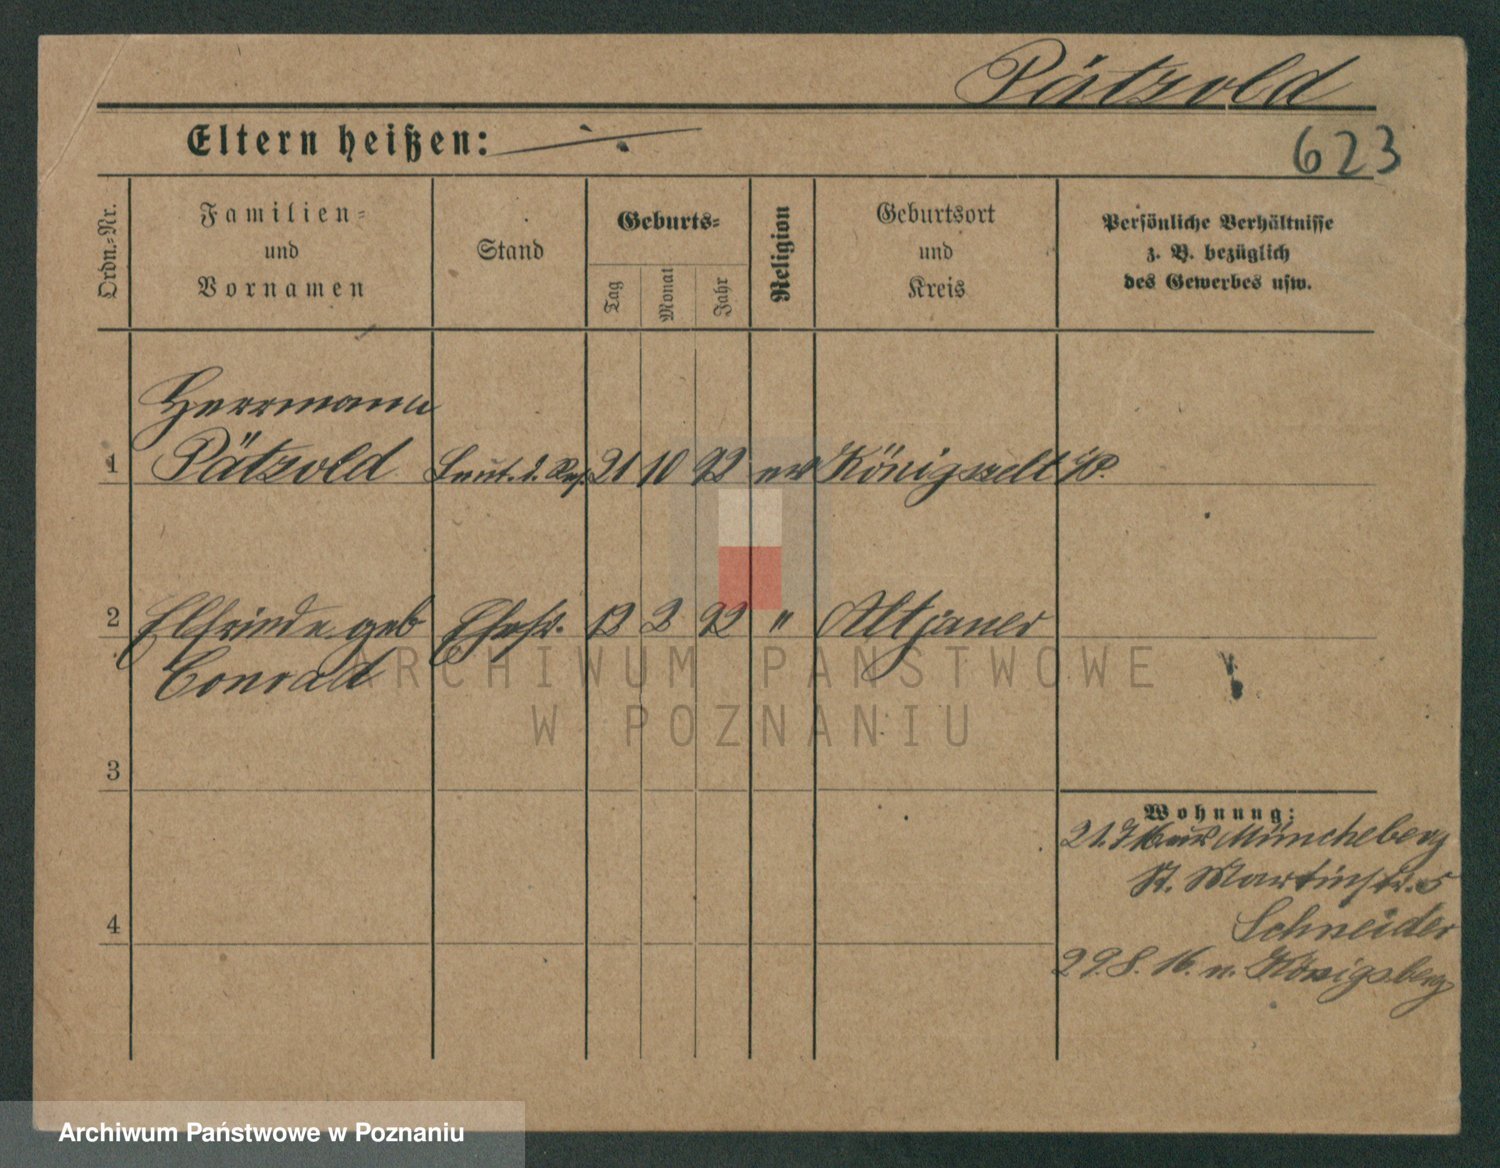 Pätzold
Eltern heißen: ·/·
623
Ordn.-Nr.
Familien-
und
Vornamen
Stand
Geburts-
Tag
Monat
Jahr
Religion
Geburtsort
und
Kreis
Persönliche Verhältnisse
z. B. bezüglich
des Gewerbes usw.
Herrmann
1 Pätzold Leut. d. Res. 21 10 92 ev Königszelt
2 Elfriede geb Ehefr. 13 2 92 " Altjauer
Conrad
3
4
Wohnung:
21.7 Müncheberg
St. Martinstr. 5
Schneider
29.8.16. n. Königsberg
ARCHIWUM PAŃSTWOWE
W POZNANIU
Archiwum Państwowe w Poznaniu